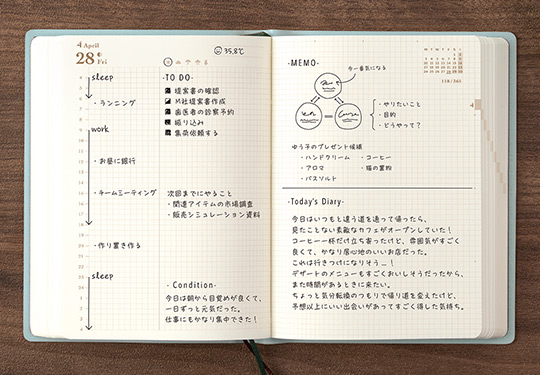 4 April
28 Fri
35.8℃
sleep
・ランニング
work
・お昼に銀行
・チームミーティング
・作り置き作る
sleep
-TO DO-
提案書の確認
M社提案書作成
歯医者の診察予約
振り込み
集荷依頼する
次回までにやること
・関連アイテムの市場調査
・販売シミュレーション資料
- Condition-
今日は朝から目覚めが良くて、
一日ずっと元気だった。
仕事にもかなり集中できた!
-MEMO-
今一番気になる
・やりたいこと
・目的
・どうやって?
ゆう子のプレゼント候補
・ハンドクリーム ・コーヒー
・アロマ ・猫の置物
・バスソルト
118/365
4
-Today's Diary-
今日はいつもと違う道を通って帰ったら、
見たことない素敵なカフェがオープンしていた!
コーヒー一杯だけ立ち寄ったけど、雰囲気がすごく
良くて、かなり居心地のいいお店だった。
これは行きつけになりそう…!
デザートのメニューもすごくおいしそうだったから、
また時間があるときに来たい。
ちょっと気分転換のつもりで帰り道を変えたけど、
予想以上にいい出会いがあってすごく得した気持ち。